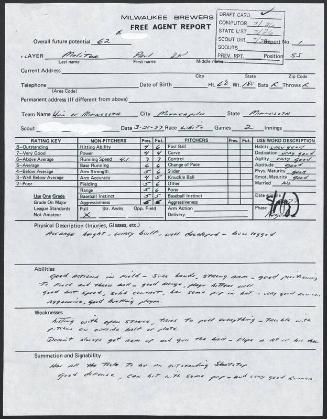 MILWAUKEE BREWERS
FREE AGENT REPORT
DRAFT CARD
COMPUTOR
STATE LIST
SCOUTS
PREV. RPT.
Overall future potential 62
Report No. 1
PLAYER Molitor Paul
Position SS
Last name First name Middle name
Current Address
City State Zip Code
Telephone (Area Code) Date of Birth Ht. 6 Wt. Bats R Throws R
Permanent address (if different from above)
Team Name Univ of Minnesota City Minneapolis State Minnesota
Scout Date 3-21-77 Race White Games 2 Innings
RATING KEY NON-PITCHERS Pres. Fut. PITCHERS Pres. Fut. USE WORD DESCRIPTION
8—Outstanding Hitting Ability 4 6 Fast Ball Habits very good
7—Very Good Power 4 4 Curve Dedication very good
6—Above Average Running Speed 4.1 7 7 Control Agility very good
5—Average Base Running Change of Pace Aptitude good
4—Below Average Arm Strength Slider Phys. Maturity good
3—Well Below Average Arm Accuracy Knuckle Ball Emot. Maturity good
2—Poor Fielding Other Married No
Range Poise
Use One Grade Baseball Instinct Baseball Instinct
Grade On Major Aggressiveness Aggressiveness
League Standards Str. Away Opp. Field Arm Action
Not Amateur Pull Delivery
Physical Description (Injuries, Glasses, etc.)
Average height - wiry built - well developed - bow legged
Abilities
Good actions in field - sure hands, strong arm - good positioning
Good bat speed, solid contact, has some pop in bat - very good runner
aggressive, good batting form
Weaknesses
hitting with open stance, tries to pull everything - trouble with
pitches on outside half of plate.
Doesn't always get arm up and give the ball
Summation and Signability
Has all the tools to be an outstanding Shortstop
Good defense, can hit with some pop - and very good runner